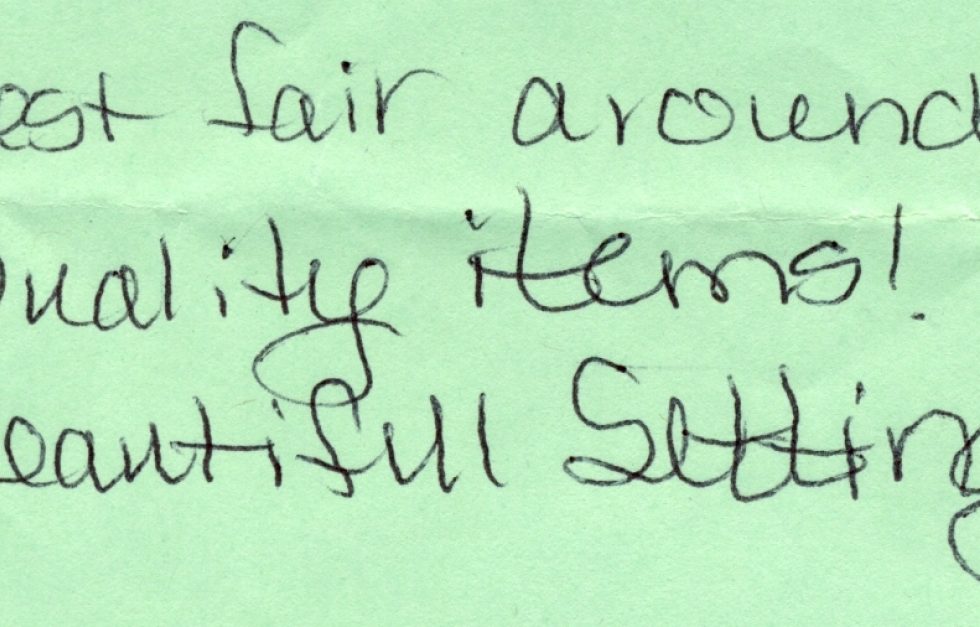 est fair around
Quality items!
Beautifull Setting